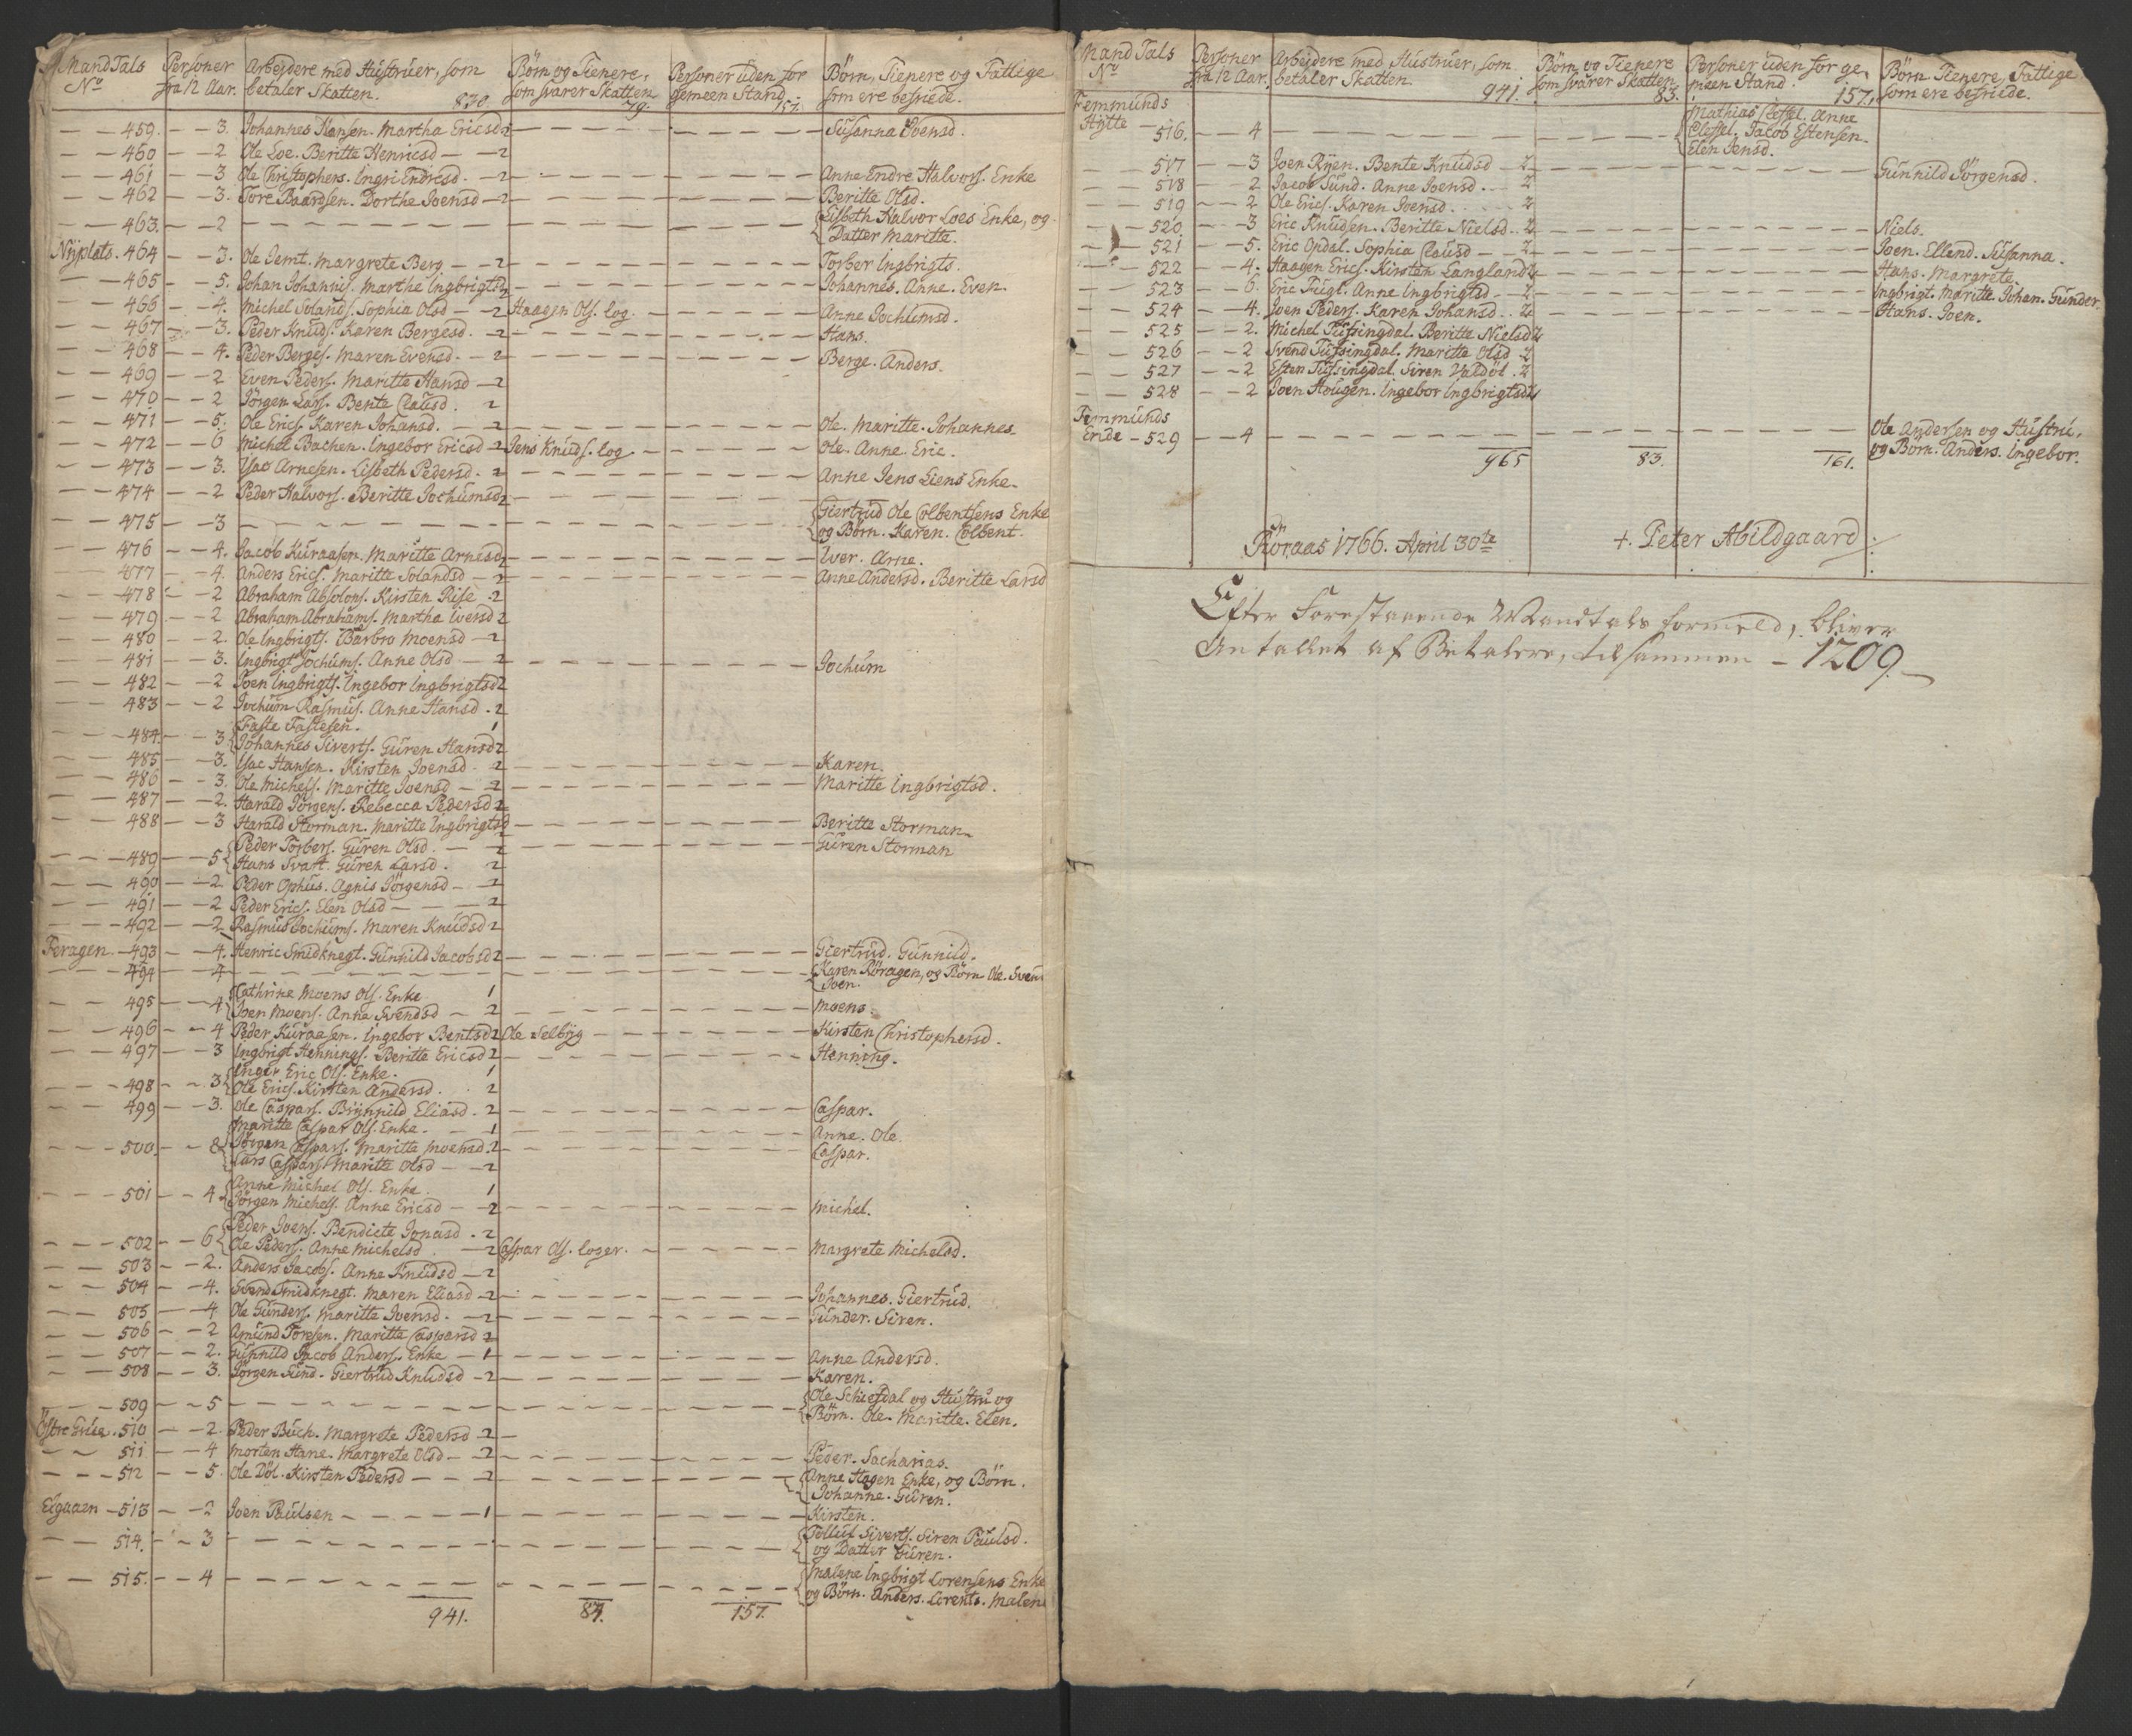 MandTals No | Personer fra 12 Aar. | Arbejdere med Hustruer, som betaler Skatten. 870. | Börn og Tienere, som svarer Skatten 79. | Personer uden for gemeen Stand 157. | Börn, Tienere og Fattige som ere befriede.
459. 3. Johannes Hansen. Martha Ericsd 2 Susanna Joensd.
460 2 Ole Loe. Beritte Henricsd 2
461 3 Ole Christophers. Ingri Endresd. 2 Anne Endre Halvors. Enke
462 3. Tore Baardsen. Dorthe Joensd 2 Beritte Olsd.
463. 2 Lisbeth Halvor Loes Enke, og
Datter Maritte.
Nyplats. 464 3. Ole Jemt. Margrete Berg 2 Torber Ingbrigts.
465 5. Johan Johannis. Marthe Ingbrigtsd 2 Johannes. Anne. Even.
466 4. Michel Solands. Sophia Olsd 2 Haagen Ols. log. Anne Jochumsd.
467 3. Peder Knuds. Karen Bergesd. 2 Hans.
468 4. Peder Berges. Maren Evensd. 2 Berge. Anders.
469 2 Even Peders. Maritte Hansd 2
470 2 Jörgen Lars. Bente Clausd. 2
471 5. Ole Erics. Karen Johansd. 2 Ole. Maritte. Johannes.
472 6 Michel Bachen. Ingebor Ericsd 2 Jens Knuds. log Ole. Anne. Eric.
473 3. Isac Arnesen. Lisbeth Pedersd. 2 Anne Jens Liens Enke.
474 2 Peder Halvors. Beritte Jochumsd 2
475 3 Giertrud Ole Colbentsens Enke
og Börn. Karen. Colbent.
476 4. Jacob Kuraasen. Maritte Arnesd 2 Iver. Arne.
477 4. Anders Erics. Maritte Solandsd 2 Anne Andersd. Beritte Larsd
478 2 Abraham Absolons. Kirsten Rise 2
479 2 Abraham Abrahams. Martha Iversd 2
480 2. Ole Ingbrigts. Barbro Moensd 2
481 3. Ingbrigt Jochums. Anne Olsd 2 Jochum
482 2 Joen Ingbrigts. Ingebor Ingbrigtsd 2
483 2 Jochum Rasmus. Anne Hansd. 2
Faste Fastesen. 1
484. 3. Johannes Siverts. Guren Hansd 2
485 3. Isac Hansen. Kirsten Joensd. 2 Karen.
486 3. Ole Michels. Maritte Joensd 2 Maritte Ingbrigtsd.
487 2. Harald Jörgens. Rebecca Pedersd 2
488 3 Harald Storman. Maritte Ingbrigtsd Beritte Storman
Peder Torbers. Guren Olsd. 2 Guren Storman
489 5 Hans Svart. Guren Larsd. 2
490 2. Peder Ophus. Agnis Jörgensd 2
491 2 Peder Erics. Elen Olsd 2
492 2 Rasmus Jochums. Maren Knudsd 2
Feragen. 493 4. Henric Smidknegt. Gunnild Jacobsd 2 Giertrud. Gunnild.
494 4 Karen Röragen, og Börn Ole. Svend
Joen.
Cathrine Moens Ols. Enke 1
495 4 Joen Moens. Anne Svendsd 2 Moens.
496 4 Peder Kuraasen. Ingebor Bentsd 2 Ole Selbyg Kirsten Christophersd.
497 3 Ingbrigt Hennings. Beritte Ericsd 2 Henning.
Inger Eric Ols. Enke. 1
498 3 Ole Erics. Kirsten Andersd. 2
499 3. Ole Caspars. Brynnild Eliasd. 2 Caspar.
Maritte Caspar Ols. Enke. 1 Anne. Ole.
500. 8 Jörgen Caspars. Maritte Moensd. 2 Caspar.
Lars Caspars. Maritte Olsd 2
Anne Michel Ols. Enke. 1
501 4 Jörgen Michels. Anne Ericsd 2 Michel.
Peder Joens. Bendicte Jonasd. 2
502 6 Ole Peders. Anne Michelsd. 2 Caspar Ols. loger. Margrete Michelsd.
503 2. Anders Jacobs. Anne Knudsd 2
504 4. Svend Smidknegt. Maren Eliasd 2 Johannes. Giertrud.
505 4. Ole Gunders. Maritte Joensd. 2 Gunder. Siren.
506 2 Amund Toresen. Maritte Caspersd 2
507 2. Gunnild Jacob Anders. Enke 1 Anne Andersd.
508 3. Jörgen Sund. Giertrud Knudsd 2 Karen.
509 5 Ole Schiefdal og Hustru og
Börn. Ole. Maritte. Elen.
Östre Grue. 510 2. Peder Buch. Margrete Pedersd 2
511 4 Morten Hane. Margrete Olsd 2 Peder. Sacharias.
512 5. Ole Döl. Kirsten Pedersd 2 Anne Hagen Enke, og Börn.
Johanne. Guren.
Elgaaen 513 2 Joen Paulsen 1 Kirsten.
514. 3 Tolluf Siverts. Siren Paulsd.
og Datter Guren.
515. 4 Malene Ingbrigt Lorensens Enke
og Börn. Anders. Lorents. Malene
941. 83. 157.
MandTals No | Personer fra 12 Aar. | Arbejdere med Hustruer, som betaler Skatten. 941. | Börn og Tienere som svarer Skatten 83. | Personer uden for gemeen Stand. 157. | Börn. Tienere, Fattige som ere befriede.
Femmunds
Hytte 516. 4 Mathias Cleffel. Anne
Cleffel. Jacob Estensen.
Elen Jensd.
517 3 Joen Ryen. Bente Knudsd 2 Gunnild Jörgensd.
518 2 Jacob Sund. Anne Joensd. 2
519 2 Ole Erics. Karen Joensd. 2
520. 3 Eric Knudsen. Beritte Nielsd. 2 Niels.
521 5. Eric Opdal. Sophia Clausd 2 Joen. Ellend. Susanna.
522 4. Haagen Erics. Kirsten Langland 2 Hans. Margrete.
523 6 Eric Fugl. Anne Ingbrigtsd 2 Ingbrigt. Maritte. Johan. Gunder.
524 4. Joen Peders. Karen Johansd. 2 Hans. Joen.
525 2. Michel Tufsingdal. Beritte Nielsd 2
526 2 Svend Tufsingdal. Maritte Olsd 2
527 2 Esten Tufsingdal. Siren Valdöl. 2
528 2 Joen Hougen. Ingebor Ingbrigtsd 2
Femmunds
Ende 529 4 Ole Andersen og Hustru,
og Börn. Anders. Ingebor.
965 83. 161.
Röraas 1766. April 30te +. Peter Abildgaard
Efter Forestaaende Mandtals formeld, bliver
Antallet af Betalere, tilsammen – 1209.